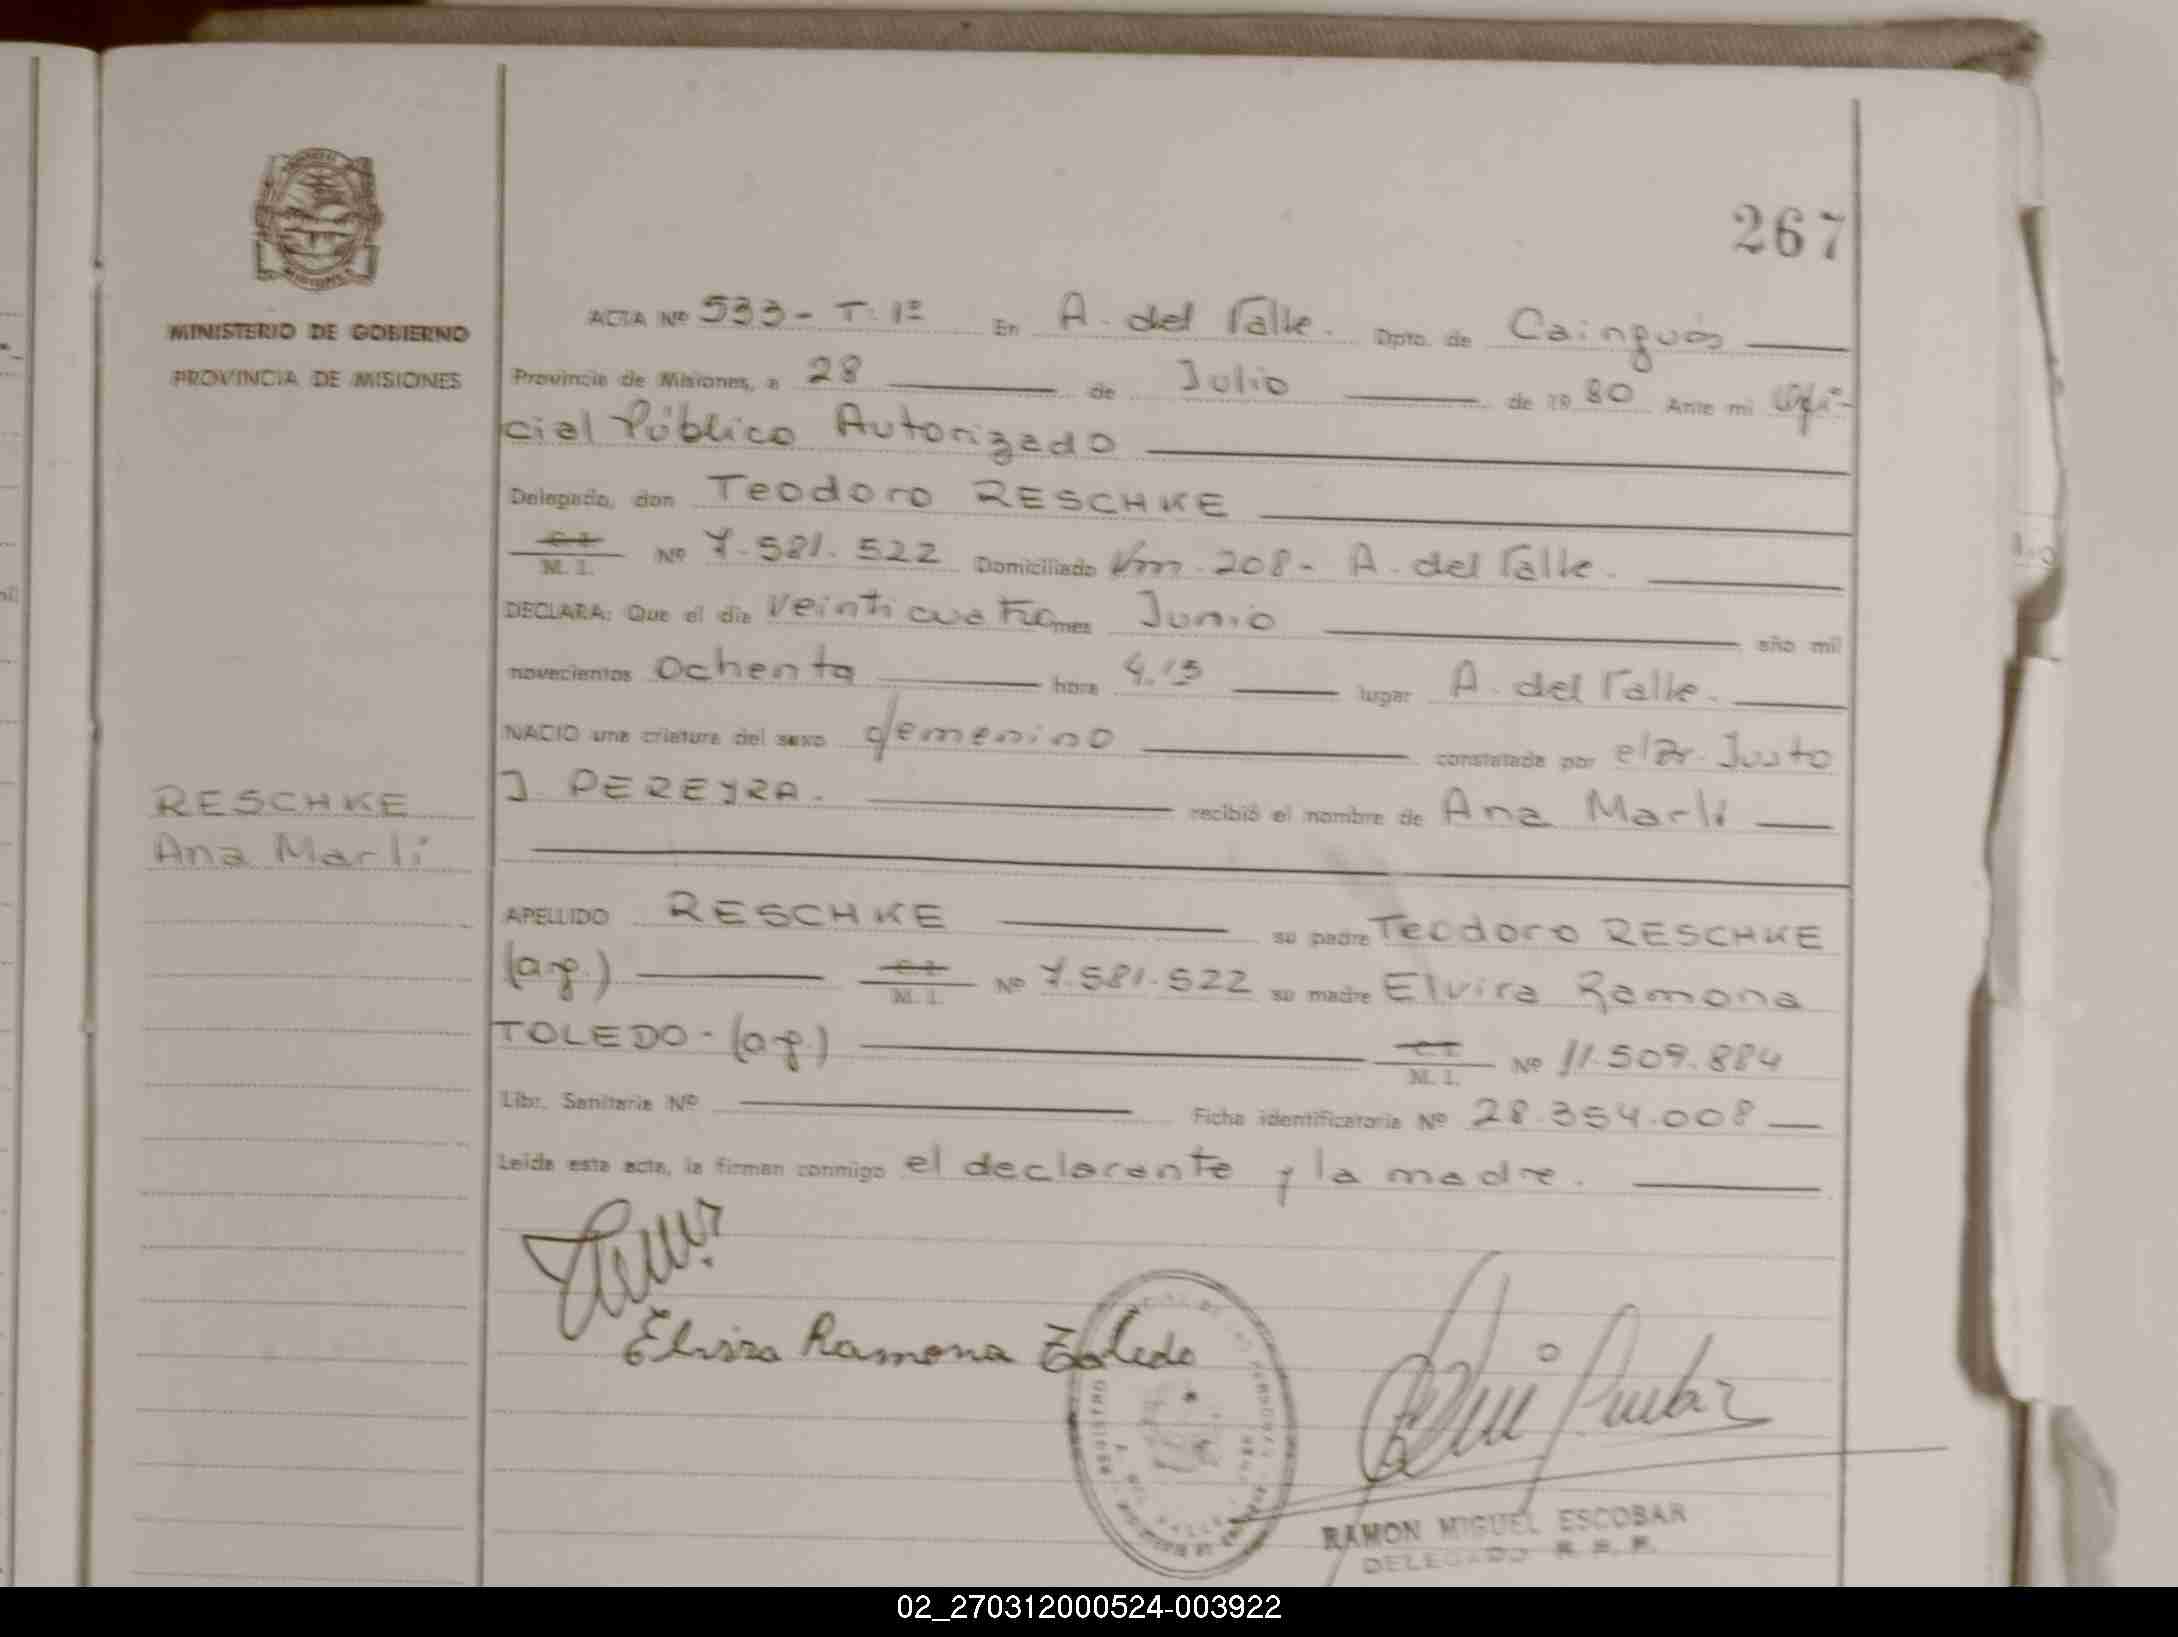 267
MINISTERIO DE GOBIERNO
PROVINCIA DE MISIONES
ACTA Nº 533 - T. 1º En A. del Valle. Dpto. de Cainguás
Provincia de Misiones, a 28 de Julio de 1980 Ante mi Ofi-
cial Público Autorizado
Delegado, don Teodoro RESCHKE
C. I.
M. I. Nº 7.581.522 Domiciliado Km. 208 - A. del Valle.
DECLARA: Que el día Veinticuatro mes Junio año mil
novecientos Ochenta hora 4.15 lugar A. del Valle.
NACIO una criatura del sexo femenino constatada por el Dr. Justo
J. PEREYRA. recibió el nombre de Ana Marlí
RESCHKE
Ana Marlí
APELLIDO RESCHKE su padre Teodoro RESCHKE
(arg.) C. I.
M. I. Nº 7.581.522 su madre Elvira Ramona
TOLEDO - (arg.) C. I.
M. I. Nº 11.509.884
Libr. Sanitaria Nº Ficha identificatoria Nº 28.354.008
Leída esta acta, la firman conmigo el declarante y la madre.
Elvira Ramona Toledo
RAMON MIGUEL ESCOBAR
DELEGADO R. P.
02_270312000524-003922